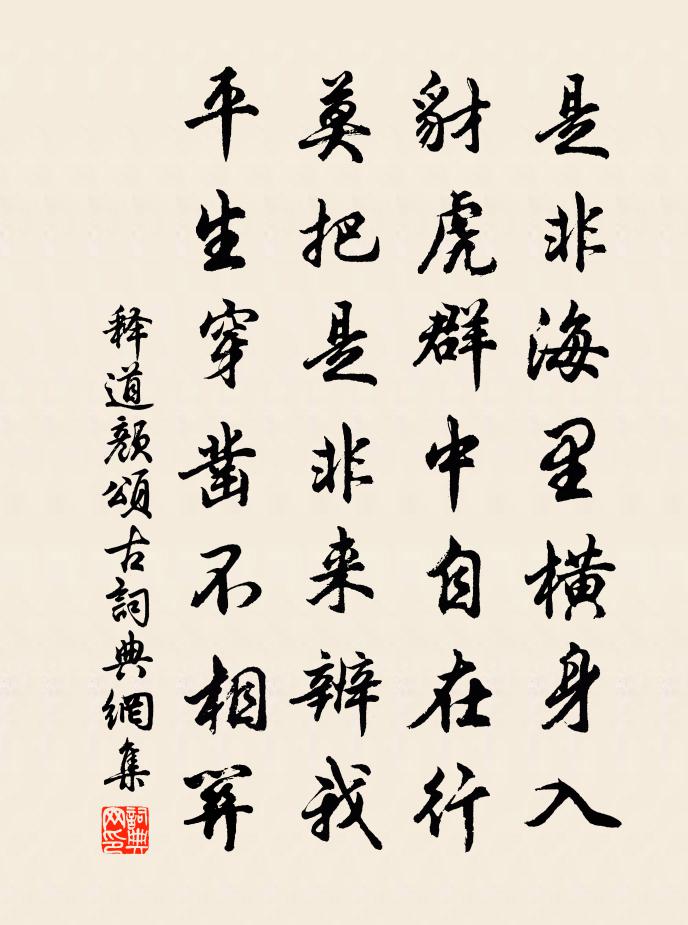 是非海里横身入
豺虎群中自在行
莫把是非来辨我
平生穿凿不相关
释道颜頌古詞典網集
詞典网印